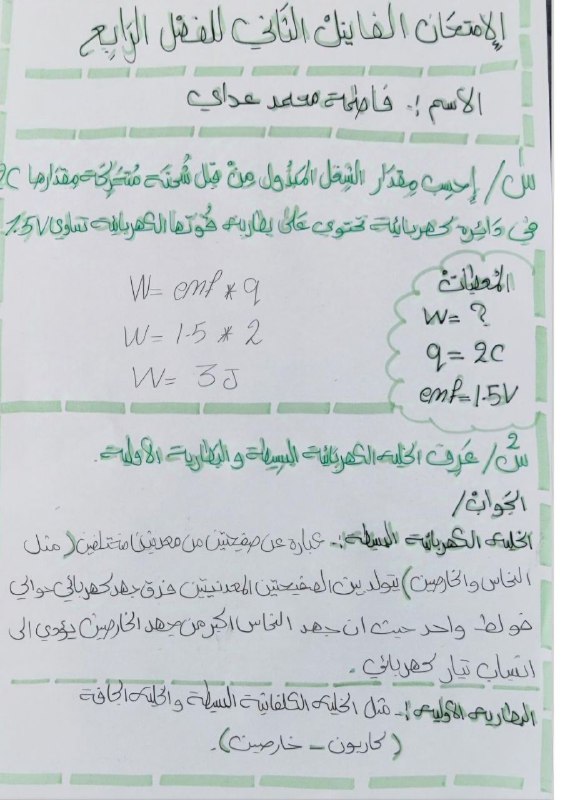 الامتحان الفاينل الثاني للفصل الرابع
الاسم :- فاطمة محمد عداي
س١/ إحسب مقدار الشغل المبذول من قبل شحنة متحركة مقدارها 2C
في دائرة كهربائية تحتوي على بطارية قوتها الكهربائية تساوي 1.5V
المعطيات
W= ?
q = 2C
emf=1.5V
W= emf * q
W= 1.5 * 2
W= 3J
س2/ عرف الخلية الكهربائية البسيطة و البطارية الاولية.
الجواب/
الخلية الكهربائية البسيطة:- عبارة عن صفيحتين من معدنين مختلفين (مثل
النحاس والخارصين) يتولد بين الصفيحتين المعدنيتين فرق جهد كهربائي حوالي
فولط واحد حيث ان جهد النحاس اكبر من جهد الخارصين يؤدي الى
انسياب تيار كهربائي.
البطارية الاولية:- مثل الخلية الكلفانية البسيطة والخلية الجافة
(كاربون - خارصين).